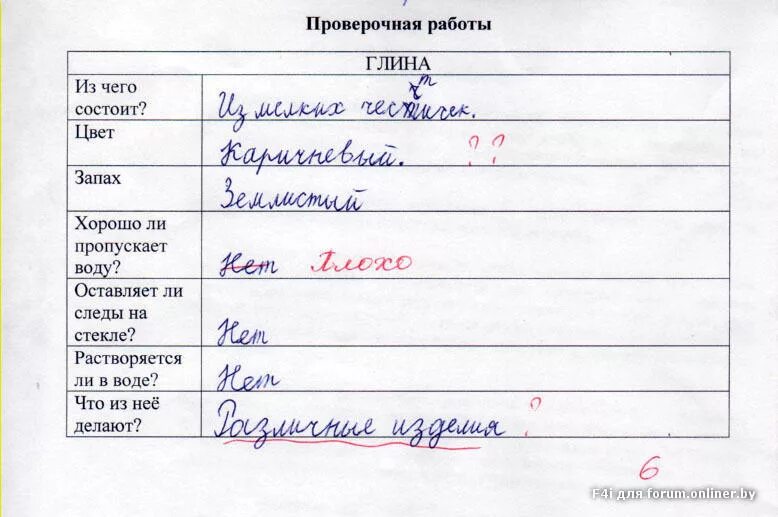 Проверочная работы
ГЛИНА
Из чего
состоит?
Из мелких честичек.
т
Цвет
Каричневый. ??
Запах
Землистый
Хорошо ли
пропускает
воду?
Нет Плохо
Оставляет ли
следы на
стекле?
Нет
Растворяется
ли в воде?
Нет
Что из неё
делают?
Различные изделия ?
6
F4i для forum.onliner.by